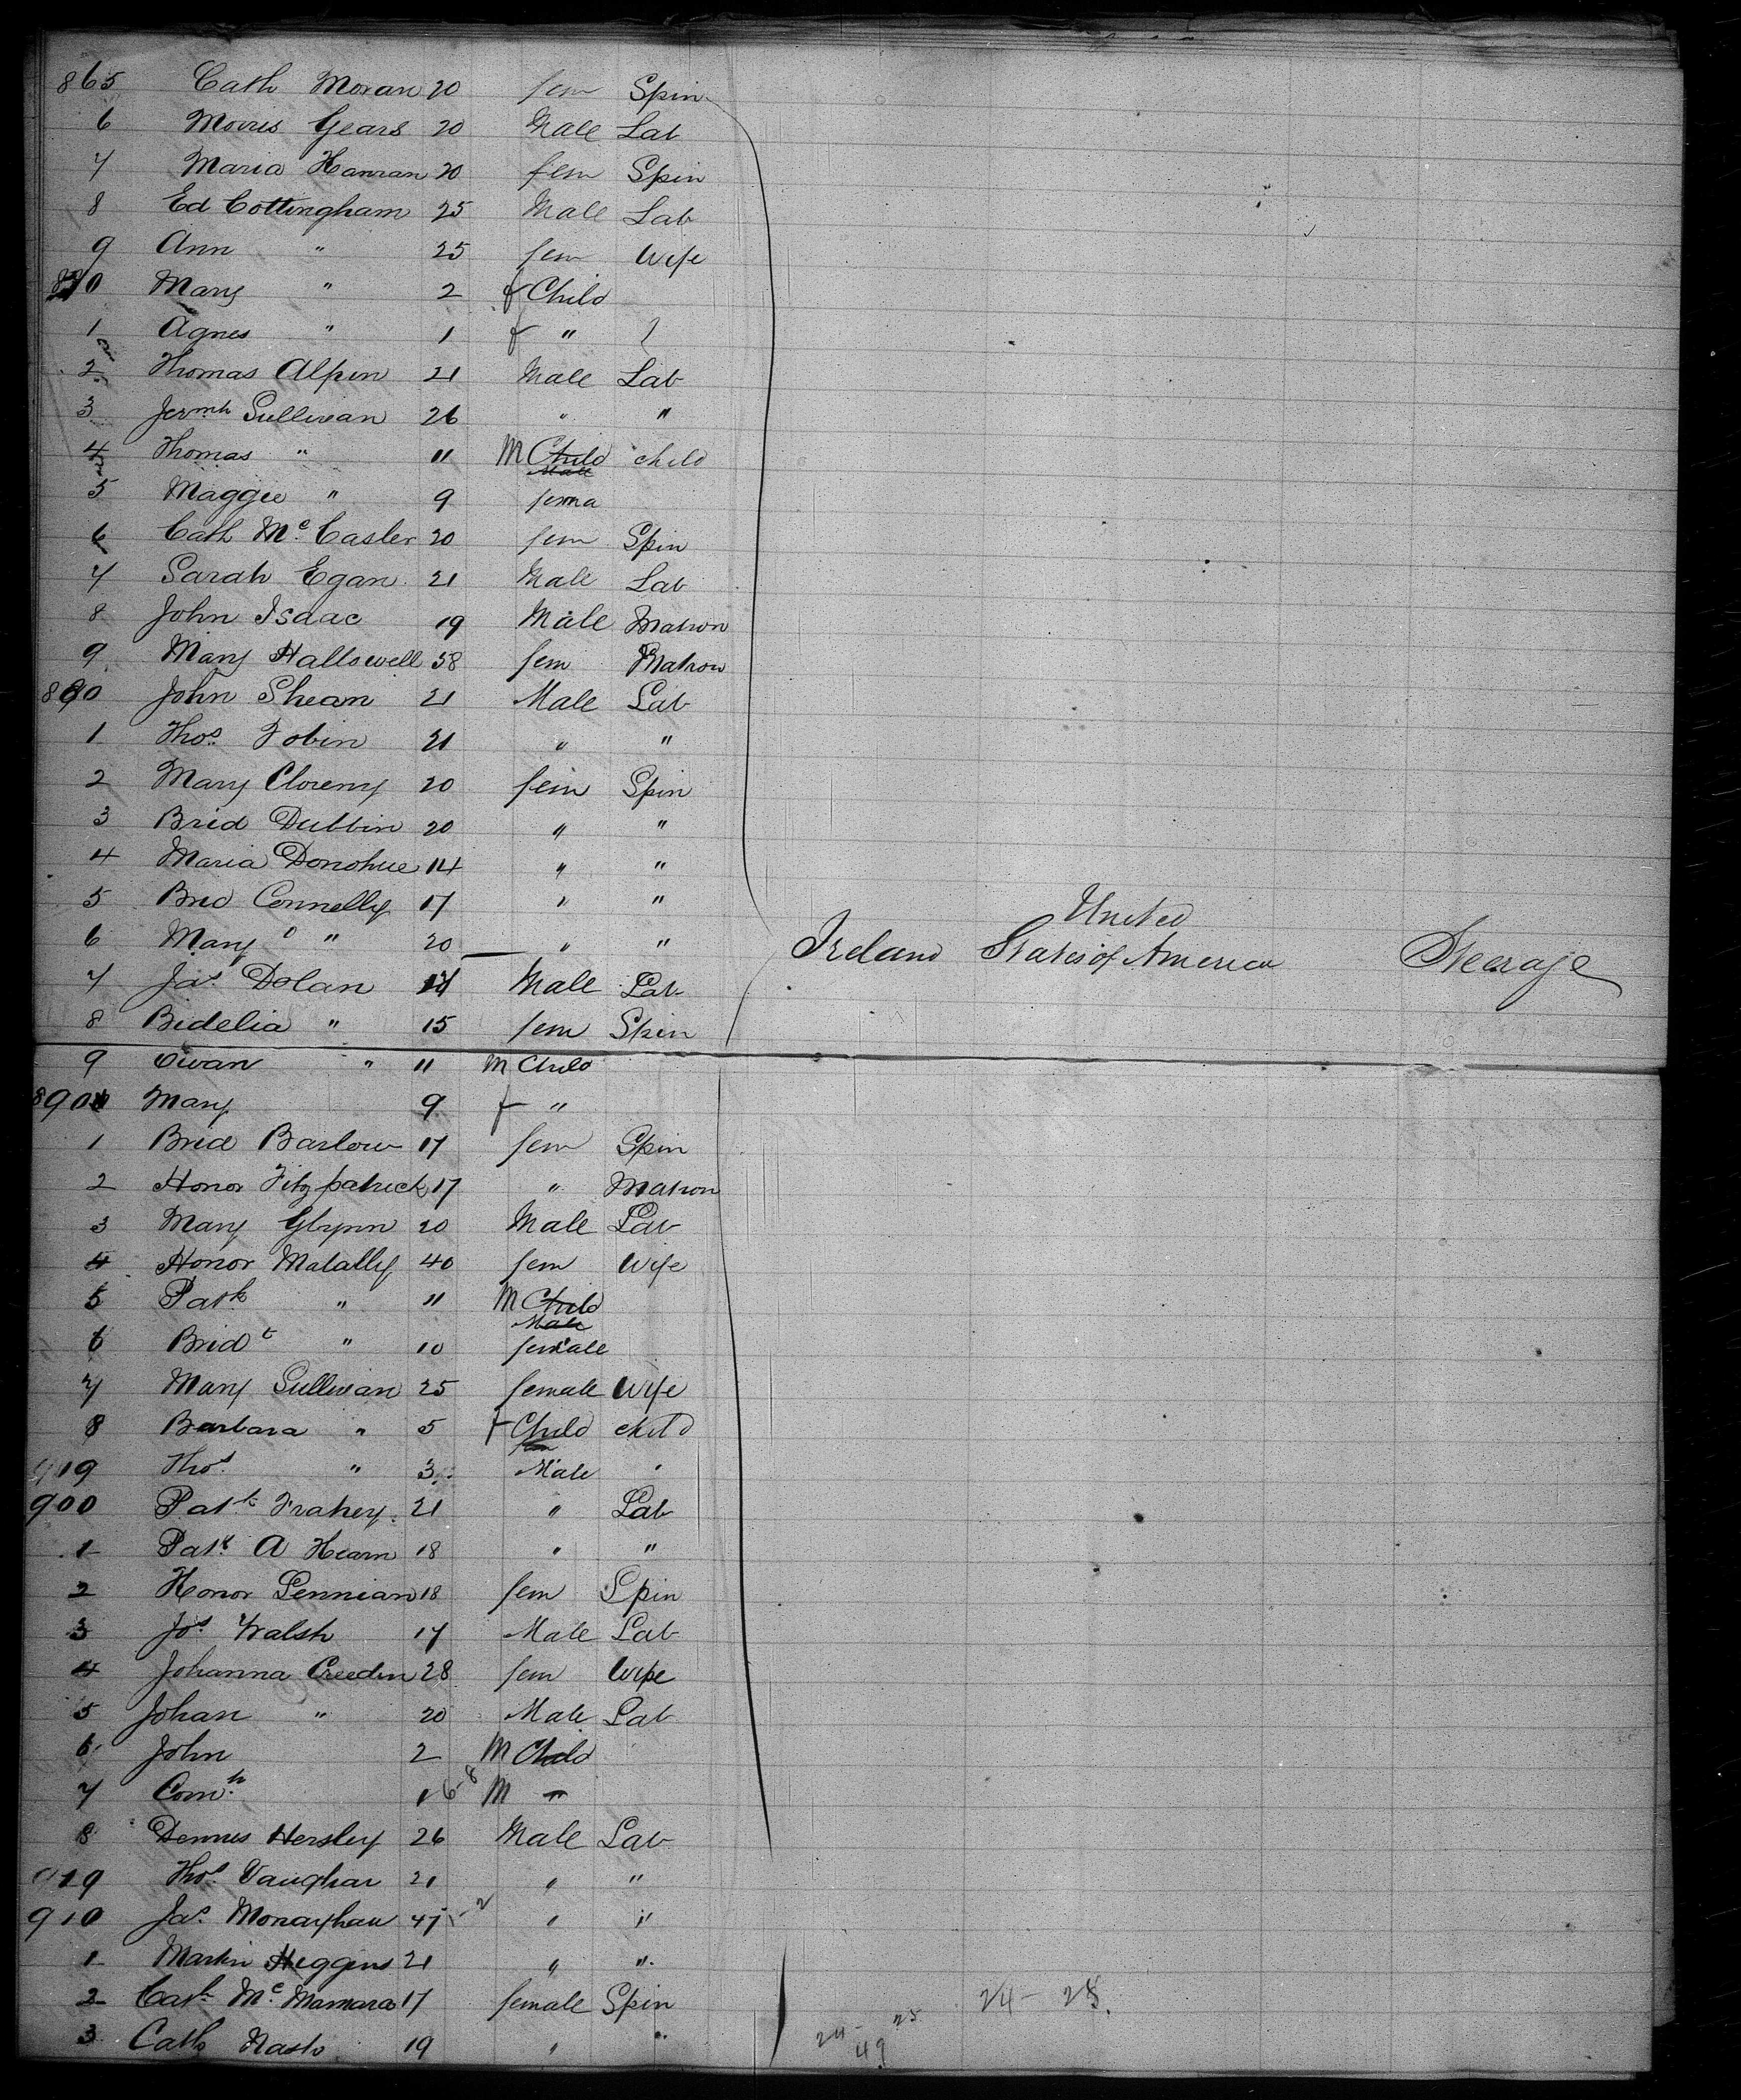 865 Cath Moran 20 fem Spin
6 Morris Gears 20 Male Lab
7 Maria Hanran 20 fem Spin
8 Ed Cottingham 25 Male Lab
9 Ann " 25 fem Wife
870 Mary " 2 f Child
1 Agnes " 1 f "
2 Thomas Alpin 21 Male Lab
3 Jermh Sullivan 26 " "
4 Thomas " 11 M Child child
Male
5 Maggie " 9 fema
6 Cath Mc Casler 20 fem Spin
7 Sarah Egan 21 Male Lab
8 John Isaac 19 Male Matron
9 Mary Hallowell 58 fem Matron
880 John Shean 21 Male Lab
1 Thos Tobin 21 " "
2 Mary Cloreny 20 fem Spin
3 Brid Dubbin 20 " "
4 Maria Donohue 14 " "
5 Brid Connelly 17 " "
6 Mary " 20 " "
Ireland United States of America Steerage
7 Jas Dolan 17 Male Lab
8 Bidelia " 15 fem Spin
9 Owan " 11 M Child
890 Mary 9 f "
1 Brid Barlow 17 fem Spin
2 Honor Fitzpatrick 17 " Matron
3 Mary Glynn 20 Male Lab
4 Honor Malally 40 fem Wife
5 Patk " 11 M Child
Male
6 Bridt " 10 female
7 Mary Sullivan 25 female Wife
8 Barbara " 5 f Child child
fem
9 Thos " 3 Male "
900 Patk Frahey 21 " Lab
1 Patk A Hearn 18 " "
2 Honor Lennian 18 fem Spin
3 Jos Walsh 17 Male Lab
4 Johanna Creedin 28 fem Wife
5 Johan " 20 Male Lab
6 John 2 M Child
7 Cornh 1 6-8 M "
8 Dennis Hersley 26 Male Lab
9 Thos Vaughan 21 " "
910 Jas Monayhan 47 " "
1 Martin Heggins 21 " "
2 Cath Mc Mamara 17 female Spin
24 - 28.
3 Cath Nash 19 " "
24 - 25
49